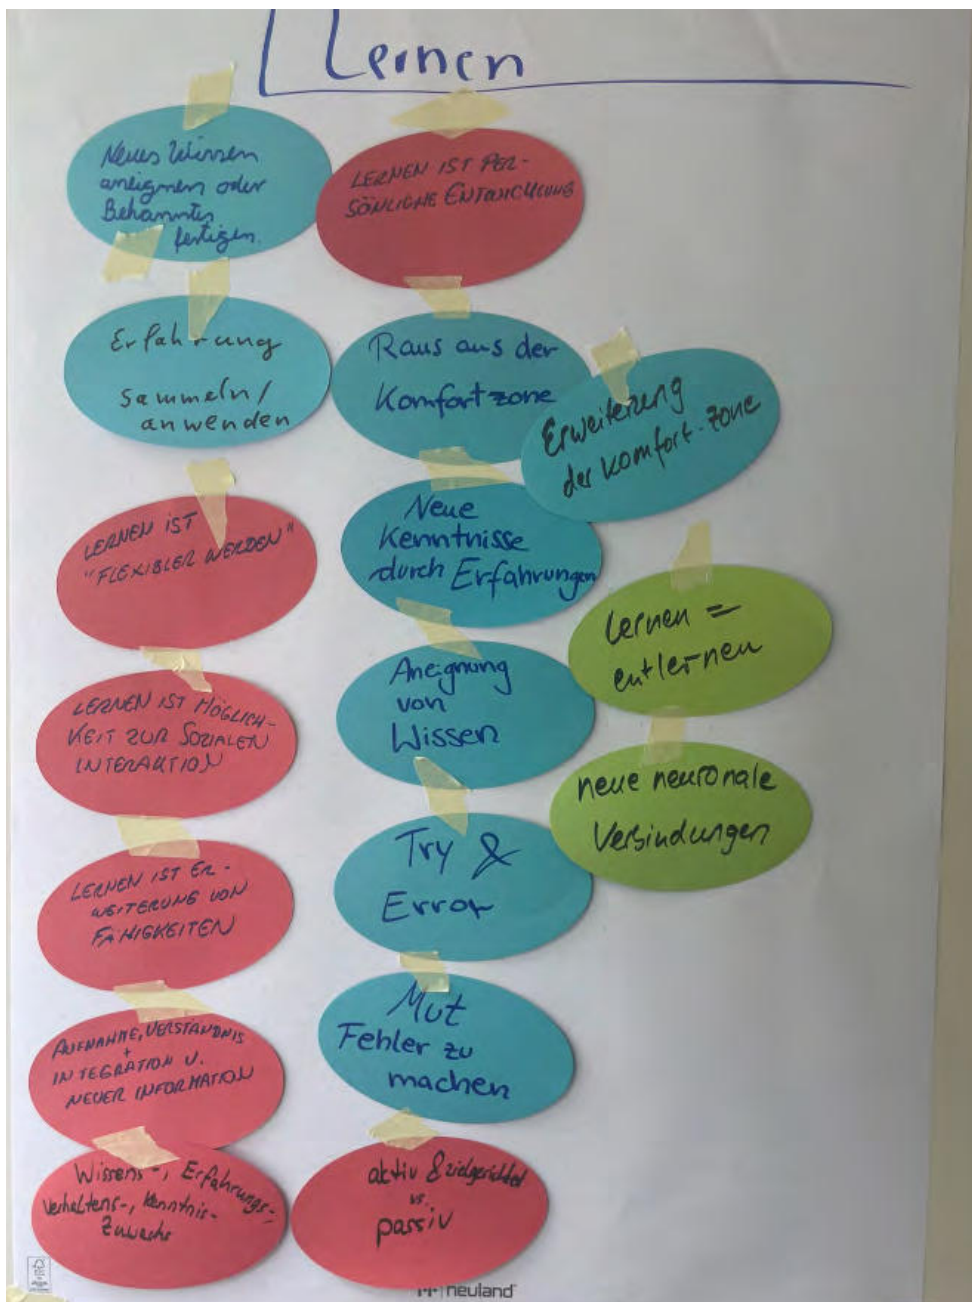 Lernen
Neues Wissen
aneignen oder
Bekanntes
festigen.
Erfahrung
sammeln/
anwenden
LERNEN IST
"FLEXIBLER WERDEN"
LERNEN IST MÖGLICH-
KEIT ZUR SOZIALEN
INTERAKTION
LERNEN IST ER-
WEITERUNG VON
FÄHIGKEITEN
AUFNAHME, VERSTÄNDNIS
+
INTEGRATION V.
NEUER INFORMATION
Wissens-, Erfahrungs-,
Verhaltens-, Kenntnis-
Zuwachs
LERNEN IST PER-
SÖNLICHE ENTWICKLUNG
Raus aus der
Komfortzone
Neue
Kenntnisse
durch Erfahrungen
Aneignung
von
Wissen
Try &
Error
Mut
Fehler zu
machen
aktiv & zielgerichtet
vs.
passiv
Erweiterung
der Komfort-zone
Lernen =
entlernen
neue neuronale
Verbindungen
neuland